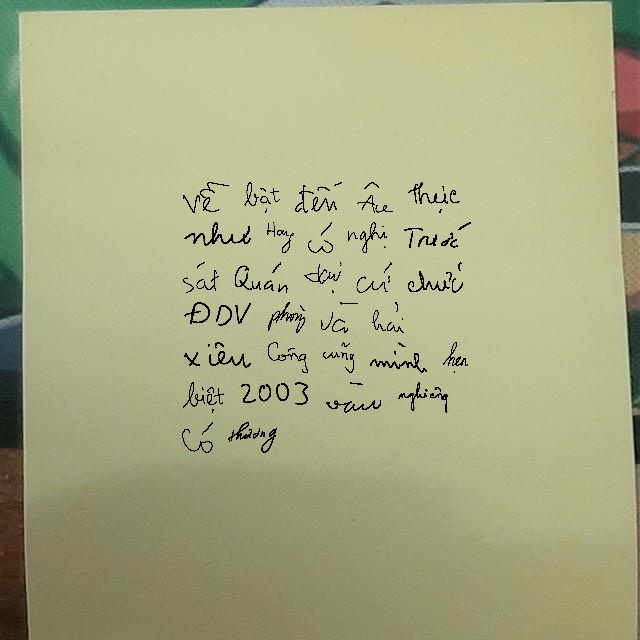 về bật đến Âu thực
như Hay có nghị Trước
sát Quán dự cứ chức
ĐDV phòng và hải
xiêu Công cũng mình hẹn
biệt 2003 vào nghiêng
Có thương